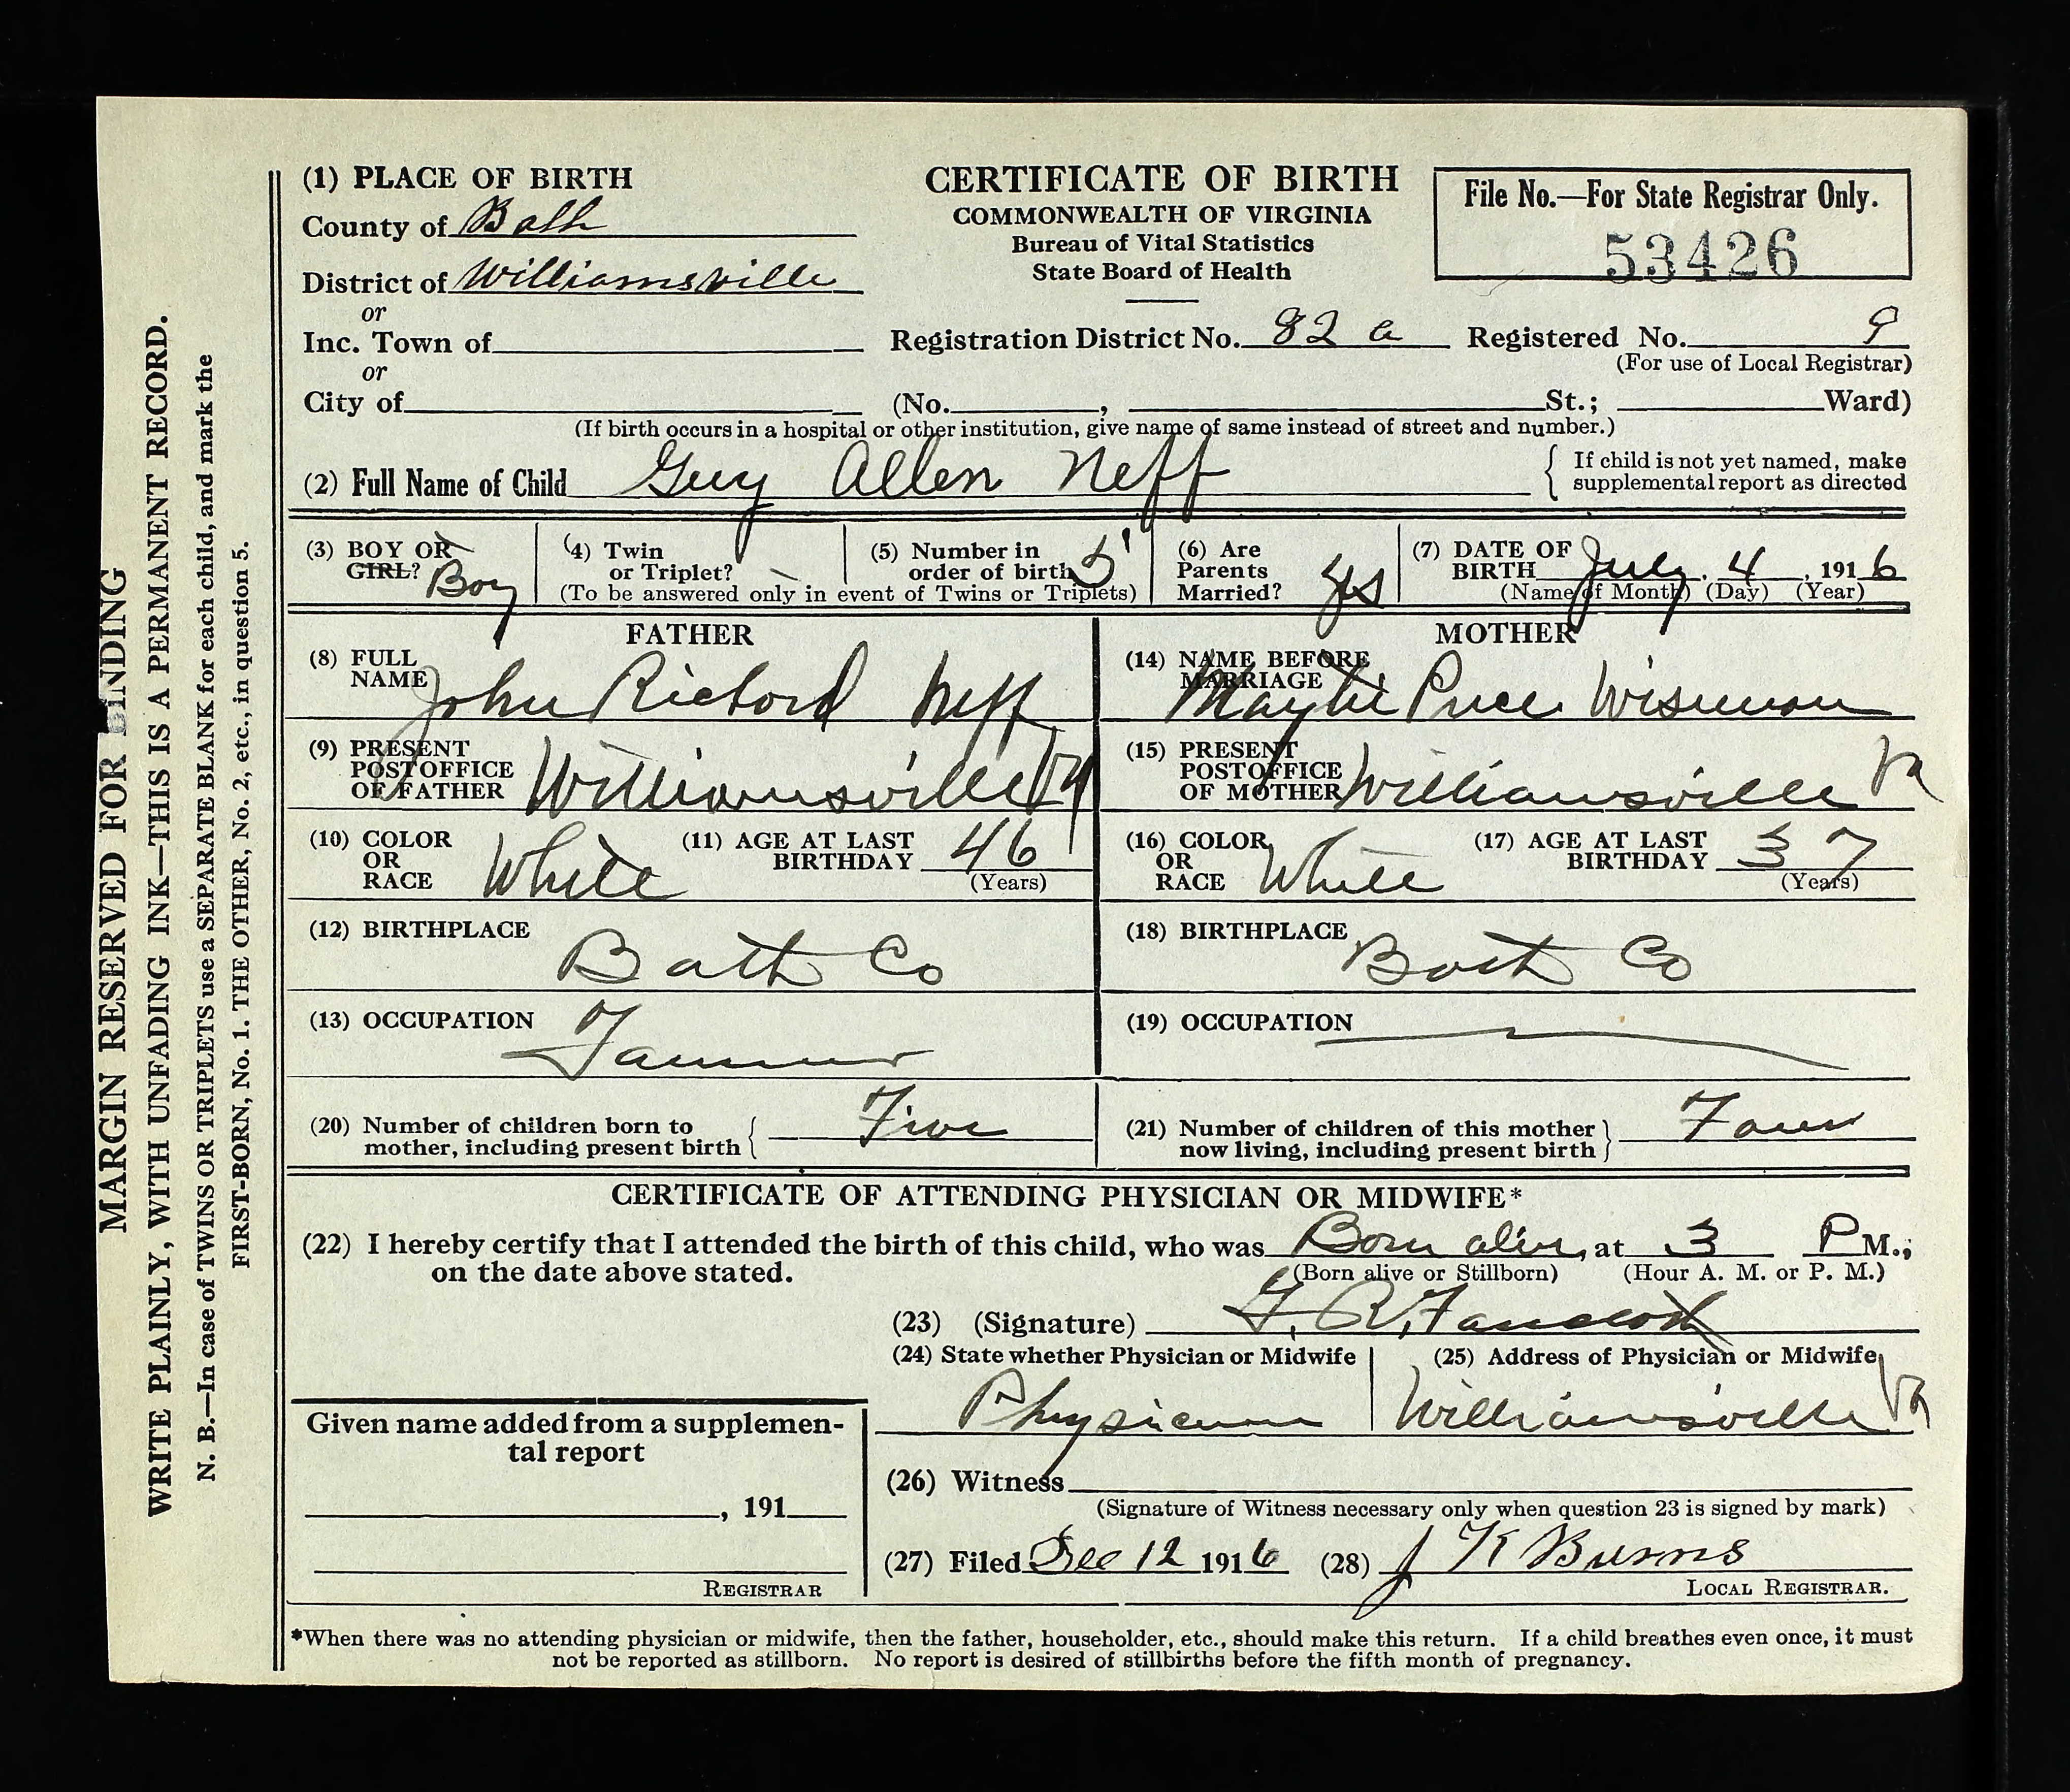 MARGIN RESERVED FOR BINDING
WRITE PLAINLY, WITH UNFADING INK—THIS IS A PERMANENT RECORD.
N. B.—In case of TWINS OR TRIPLETS use a SEPARATE BLANK for each child, and mark the
FIRST-BORN, No. 1. THE OTHER, No. 2, etc., in question 5.
(1) PLACE OF BIRTH
County of Bath
District of Williamsville
or
Inc. Town of
or
City of
CERTIFICATE OF BIRTH
COMMONWEALTH OF VIRGINIA
Bureau of Vital Statistics
State Board of Health
File No.—For State Registrar Only.
53426
Registration District No. 82 a Registered No. 9
(For use of Local Registrar)
(No. , St.; Ward)
(If birth occurs in a hospital or other institution, give name of same instead of street and number.)
(2) Full Name of Child Guy Allen Neff
If child is not yet named, make
supplemental report as directed
(3) BOY OR
GIRL? Boy
(4) Twin
or Triplet?
(5) Number in
order of birth 5
(To be answered only in event of Twins or Triplets)
(6) Are
Parents
Married? yes
(7) DATE OF
BIRTH July, 4, 1916
(Name of Month) (Day) (Year)
FATHER
(8) FULL
NAME John Richard Neff
(9) PRESENT
POSTOFFICE
OF FATHER Williamsville Va
(10) COLOR
OR
RACE White
(11) AGE AT LAST
BIRTHDAY 46
(Years)
(12) BIRTHPLACE
Bath Co
(13) OCCUPATION
Farmer
(20) Number of children born to
mother, including present birth Five
MOTHER
(14) NAME BEFORE
MARRIAGE Price Wiseman
(15) PRESENT
POSTOFFICE
OF MOTHER Williamsville Va
(16) COLOR
OR
RACE White
(17) AGE AT LAST
BIRTHDAY 37
(Years)
(18) BIRTHPLACE
Bath Co
(19) OCCUPATION
(21) Number of children of this mother
now living, including present birth Four
CERTIFICATE OF ATTENDING PHYSICIAN OR MIDWIFE*
(22) I hereby certify that I attended the birth of this child, who was Born alive, at 3 P M.,
on the date above stated.
(Born alive or Stillborn) (Hour A. M. or P. M.)
(23) (Signature) G. R.
(24) State whether Physician or Midwife
Physician
(25) Address of Physician or Midwife
Williamsville Va
Given name added from a supplemen-
tal report
, 191
REGISTRAR
(26) Witness
(Signature of Witness necessary only when question 23 is signed by mark)
(27) Filed Dec 12 1916 (28) J K Burns
LOCAL REGISTRAR.
*When there was no attending physician or midwife, then the father, householder, etc., should make this return. If a child breathes even once, it must
not be reported as stillborn. No report is desired of stillbirths before the fifth month of pregnancy.